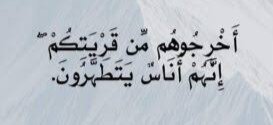 أَخْرِجُوهُم مِّن قَرْيَتِكُمْ ۖ
إِنَّهُمْ أُنَاسٌ يَتَطَهَّرُونَ.